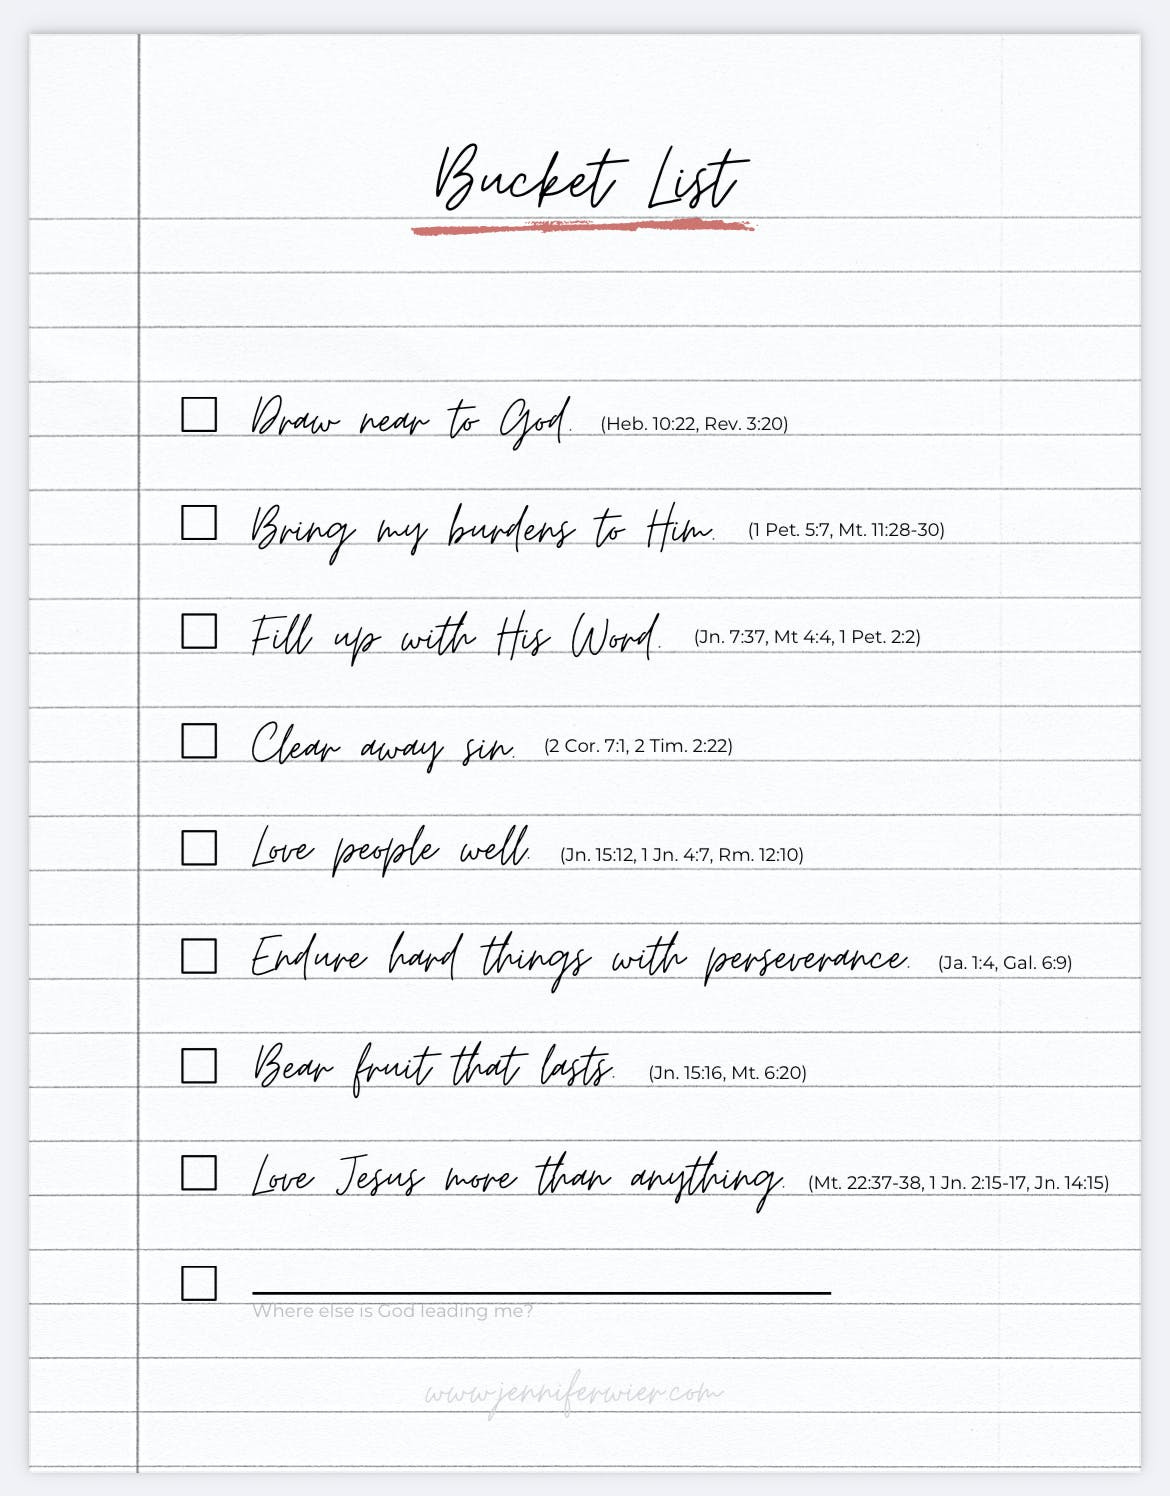 Bucket List
Draw near to God. (Heb. 10:22, Rev. 3:20)
Bring my burdens to Him. (1 Pet. 5:7, Mt. 11:28-30)
Fill up with His Word. (Jn. 7:37, Mt 4:4, 1 Pet. 2:2)
Clear away sin. (2 Cor. 7:1, 2 Tim. 2:22)
Love people well. (Jn. 15:12, 1 Jn. 4:7, Rm. 12:10)
Endure hard things with perseverance. (Ja. 1:4, Gal. 6:9)
Bear fruit that lasts. (Jn. 15:16, Mt. 6:20)
Love Jesus more than anything. (Mt. 22:37-38, 1 Jn. 2:15-17, Jn. 14:15)
Where else is God leading me?
www.jenniferwier.com